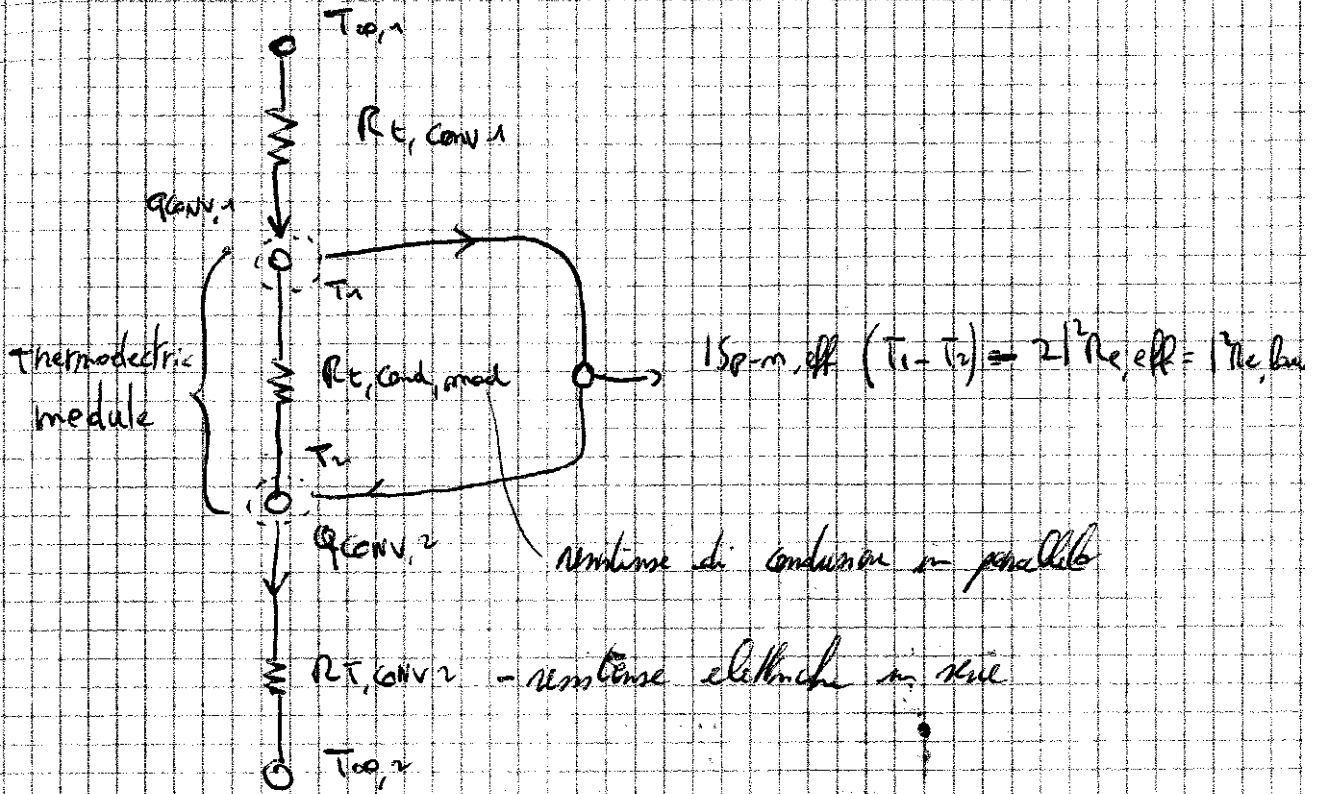 T∞,1
Rt, conv 1
qconv,1
T1
Thermoelectric
module
Rt, cond, mod
ISp-n, eff (T1 - T2) = 2I²Re,eff = I²Re,
T2
qconv,2
resistenze di conduzione in parallelo
RT, conv 2 - resistenze elettriche in serie
T∞,2